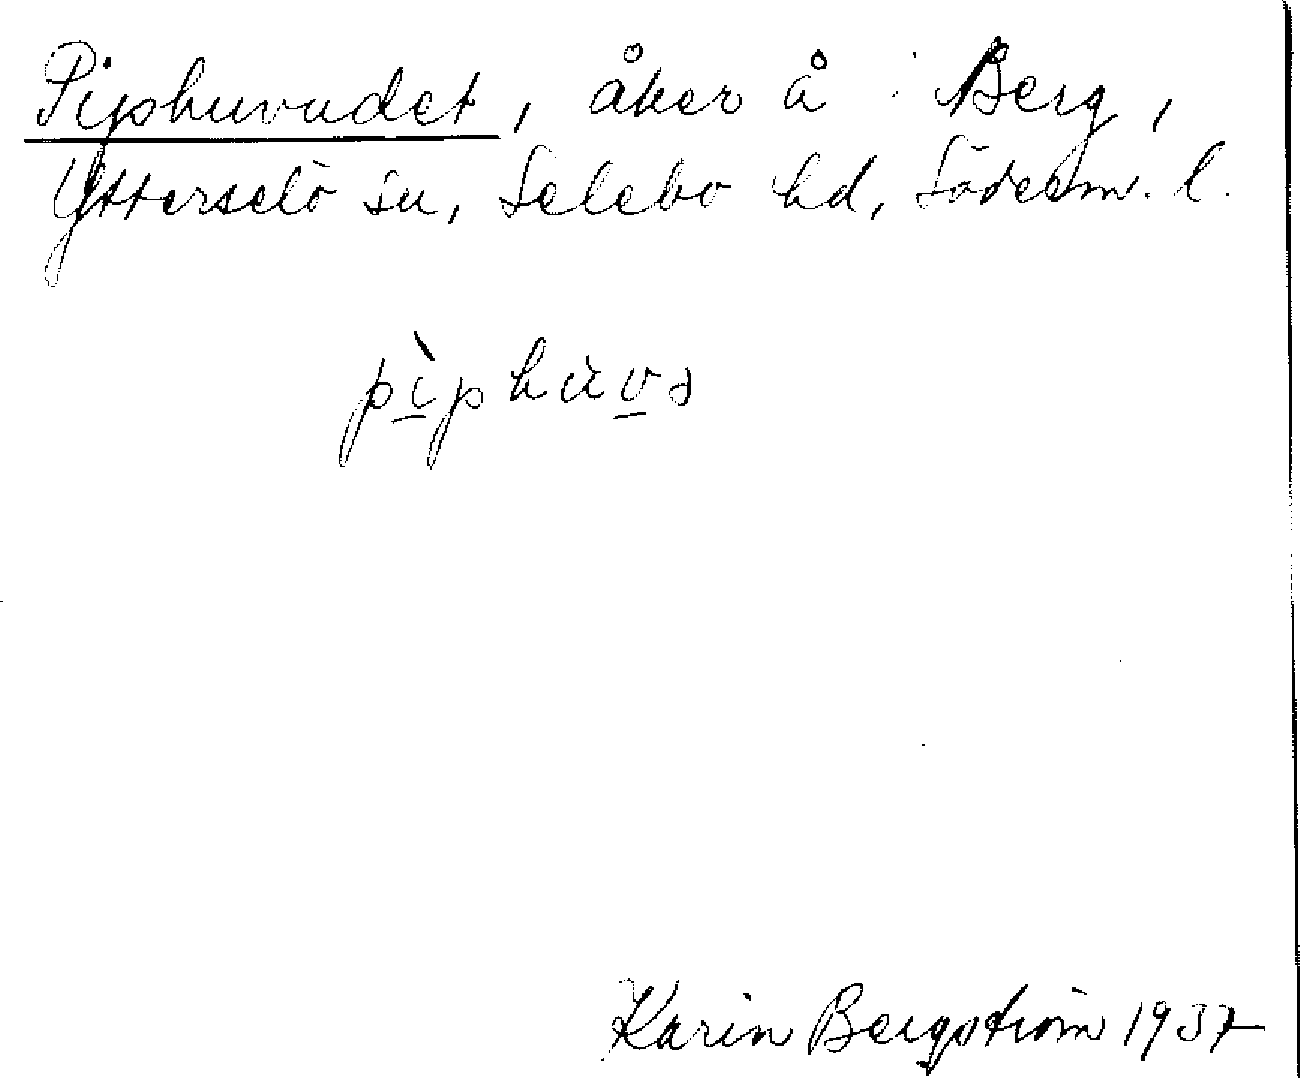 Piphuvudet, åker å Berg,
Ytterselö sn, Selebo hd, Söderm. l.
pìphùvə
Karin Bergström 1937